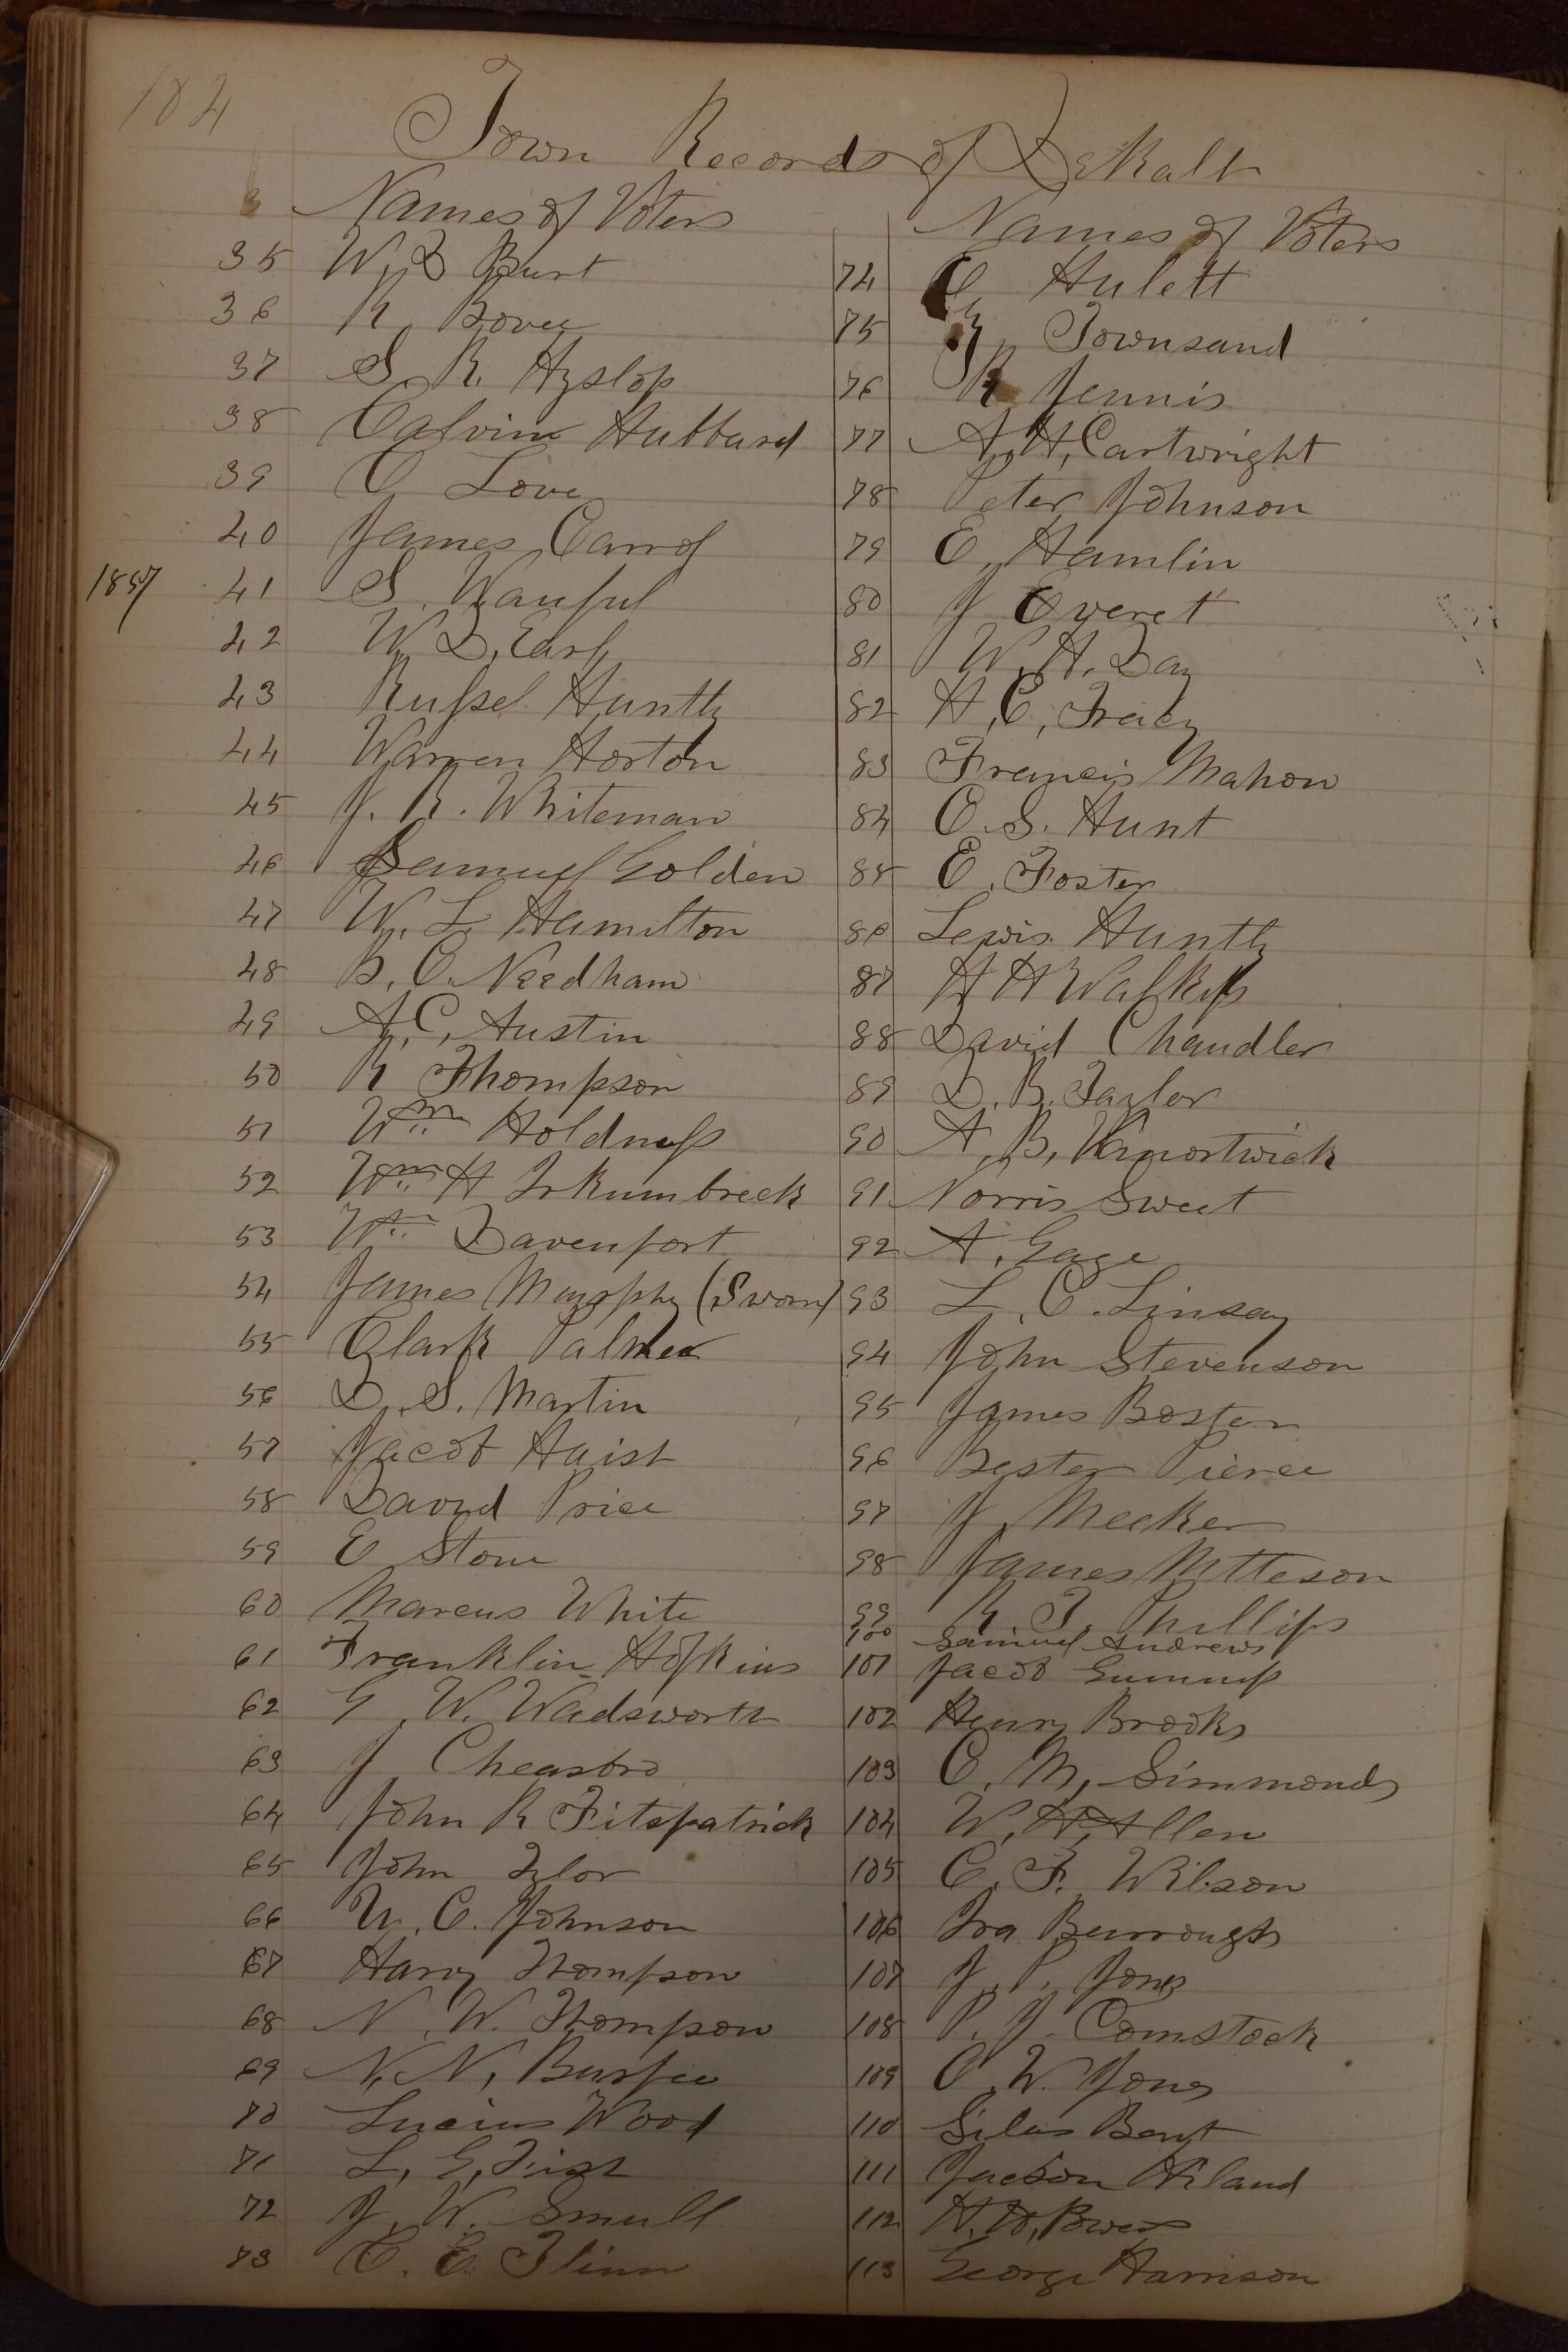 184
Town Records of DeKalb
Names of Voters
35 W, D Burt
36 R Bovee
37 S. R. Hyslop
38 Calvin Hubbard
39 O Love
40 James Carrol
1857 41 S. Wanful
42 W. D. Earl
43 Russel Huntly
44 Warren Horton
45 J. R. Whiteman
46 Samuel Golden
47 W. L. Hamilton
48 B. C. Needham
49 A. C, Austin
50 R Thompson
51 Wm Holdness
52 Wm H Irkumbreck
53 Wm Davenport
54 James Murphy (Sworn)
55 Clark Palmer
56 D. S. Martin
57 Jacob Haist
58 David Price
59 E Stone
60 Marcus White
61 Franklin Hopkins
62 G. W. Wadsworth
63 J Cheasbro
64 John R Fitspatrick
65 John Tylor
66 U. C. Johnson
67 Harvy Thompson
68 N. W. Thompson
69 N, N, Burpee
70 Lucius Wood
71 L, G, Fisk
72 J. W. Smull
73 C. E. Flinn
Names of Voters
74 O Hulett
75 Townsand
76 R Jennis
77 A, H, Cartwright
78 Peter Johnson
79 E, Hamlin
80 J Everet
81 W. H. Day
82 H, C, Tracy
83 Francis Mahon
84 O. S. Hunt
85 E. Foster
86 Lewis Huntly
87 H H
88 David Chandler
89 D. B. Taylor
90 A, B, Vanortwick
91 Norris Sweet
92 A, Gage
93 L. C. Linsay
94 John Stevenson
95 James Boster
96 Bester Pierce
97 J Meeker
98 James Mtteson
99 R. T, Phillips
100 Samuel Andrews
101 Jacob Gummp
102 Henry Brooks
103 O. M, Simmonds
104 W, H, Allen
105 C, F. Wilson
106 Ira Burroughs
107 J. P. Jones
108 P. J. Comstock
109 O, W. Jones
110 Silas Bent
111 Jackson Hiland
112 H. H, Bowen
113 George Harrison